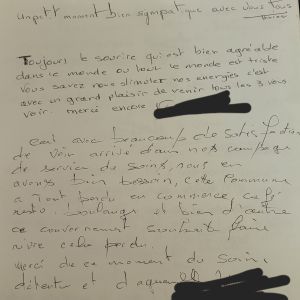 un petit moment bien sympatique avec vous tous
Toujours le sourire qui est bien agréable
dans le monde ou tout le monde est triste
vous savez nous stimuler nos energies c'est
avec un grand plaisir de venir tous les 3 vous
voir. merci encore
C'est avec beaucoup de satisfaction
de voir arrivé dans nos campagne
de service de soins, nous en
avons bien besoin, cette commune
a tout perdu en commerce café
resto. boulanger et bien d'autre
ce gouvernement souhait faire
vivre cela perdu.
Merci de ce moment du soin,
détente et